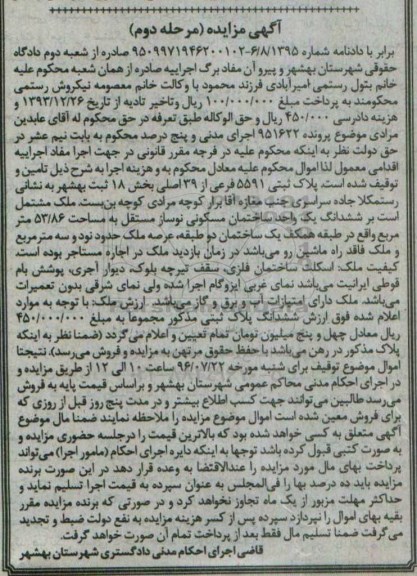 آگهی مزایده (مرحله دوم)
برابر با دادنامه شماره ۹۵۰۹۹۷۱۹۴۶۲۰۰۱۰۲-۶/۸/۱۳۹۵ صادره از شعبه دوم دادگاه
حقوقی شهرستان بهشهر و پیرو آن مفاد برگ اجراییه صادره از همان شعبه محکوم علیه
خانم بتول رستمی امیرآبادی فرزند محمود با وکالت خانم معصومه نیکروش رستمی
محکومند به پرداخت مبلغ ۱۰۰/۰۰۰/۰۰۰ ریال وتاخیر تادیه از تاریخ ۱۳۹۳/۱۲/۲۶ و
هزینه دادرسی ۴۵۰/۰۰۰ ریال و حق الوکاله طبق تعرفه در حق محکوم له آقای عابدین
مرادی موضوع پرونده ۹۵۱۶۲۲ اجرای مدنی و پنج درصد محکوم به بابت نیم عشر در
حق دولت نظر به اینکه محکوم علیه در فرجه مقرر قانونی در جهت اجرا مفاد اجراییه
اقدامی معمول لذا اموال محکوم علیه معادل محکوم به و هزینه اجرا به شرح ذیل تامین و
توقیف شده است. پلاک ثبتی ۵۵۹۱ فرعی از ۳۹ اصلی بخش ۱۸ ثبت بهشهر به نشانی
رستمکلا جاده سراسری جنب مغازه آقا برار کوچه مرادی کوچه بن‌بست. ملک مشتمل
است بر ششدانگ یک واحد ساختمان مسکونی نوساز مستقل به مساحت ۵۳/۸۶ متر
مربع واقع در طبقه همکف یک ساختمان دو طبقه، عرصه ملک حدود نود و سه مترمربع
و ملک فاقد راه ماشین رو می‌باشد در زمان بازدید ملک در اجاره مستاجر بوده است.
کیفیت ملک: اسکلت ساختمان فلزی، سقف تیرچه بلوک، دیوار آجری، پوشش بام
قوطی ایرانیت می‌باشد نمای غربی ایزوگام اجرا شده ولی نمای شرقی بدون تعمیرات
می‌باشد. ملک دارای امتیازات آب و برق و گاز می‌باشد. ارزش ملک: با توجه به موارد
اعلام شده فوق ارزش ششدانگ پلاک ثبتی مذکور مجموعا به مبلغ ۴۵۰/۰۰۰/۰۰۰
ریال معادل چهل و پنج میلیون تومان تمام تعیین و اعلام می‌گردد (ضمنا نظر به اینکه
پلاک مذکور در رهن می‌باشد با حفظ حقوق مرتهن به مزایده و فروش می‌رسد). نتیجتا
اموال موضوع توقیف برای شنبه مورخه ۹۶/۰۷/۲۲ ساعت ۱۰ الی ۱۲ از طریق مزایده و
در اجرای احکام مدنی محاکم عمومی شهرستان بهشهر و براساس قیمت پایه به فروش
می‌رسد طالبین می‌توانند جهت کسب اطلاع بیشتر و در مدت پنج روز قبل از روزی که
برای فروش معین شده است اموال موضوع مزایده را ملاحظه نمایند ضمنا مال موضوع
آگهی متعلق به کسی خواهد شده بود که بالاترین قیمت را درجلسه حضوری مزایده و
به صورت کتبی قبول کرده باشد توجها به اینکه دایره اجرای احکام (مامور اجرا) می‌تواند
پرداخت بهای مال مورد مزایده را عندالاقتضا به وعده قرار دهد در این صورت برنده
مزایده باید ده درصد بها را فی‌المجلس به عنوان سپرده به قیمت اجرا تسلیم نماید و
حداکثر مهلت مزبور از یک ماه تجاوز نخواهد کرد و در صورتی که برنده مزایده مقرر
بقیه بهای اموال را نپردازد سپرده پس از کسر هزینه مزایده به نفع دولت ضبط و تجدید
می‌گرفت ضمنا تسلیم مال فقط بعد از پرداخت تمام آن صورت خواهد گرفت.
قاضی اجرای احکام مدنی دادگستری شهرستان بهشهر